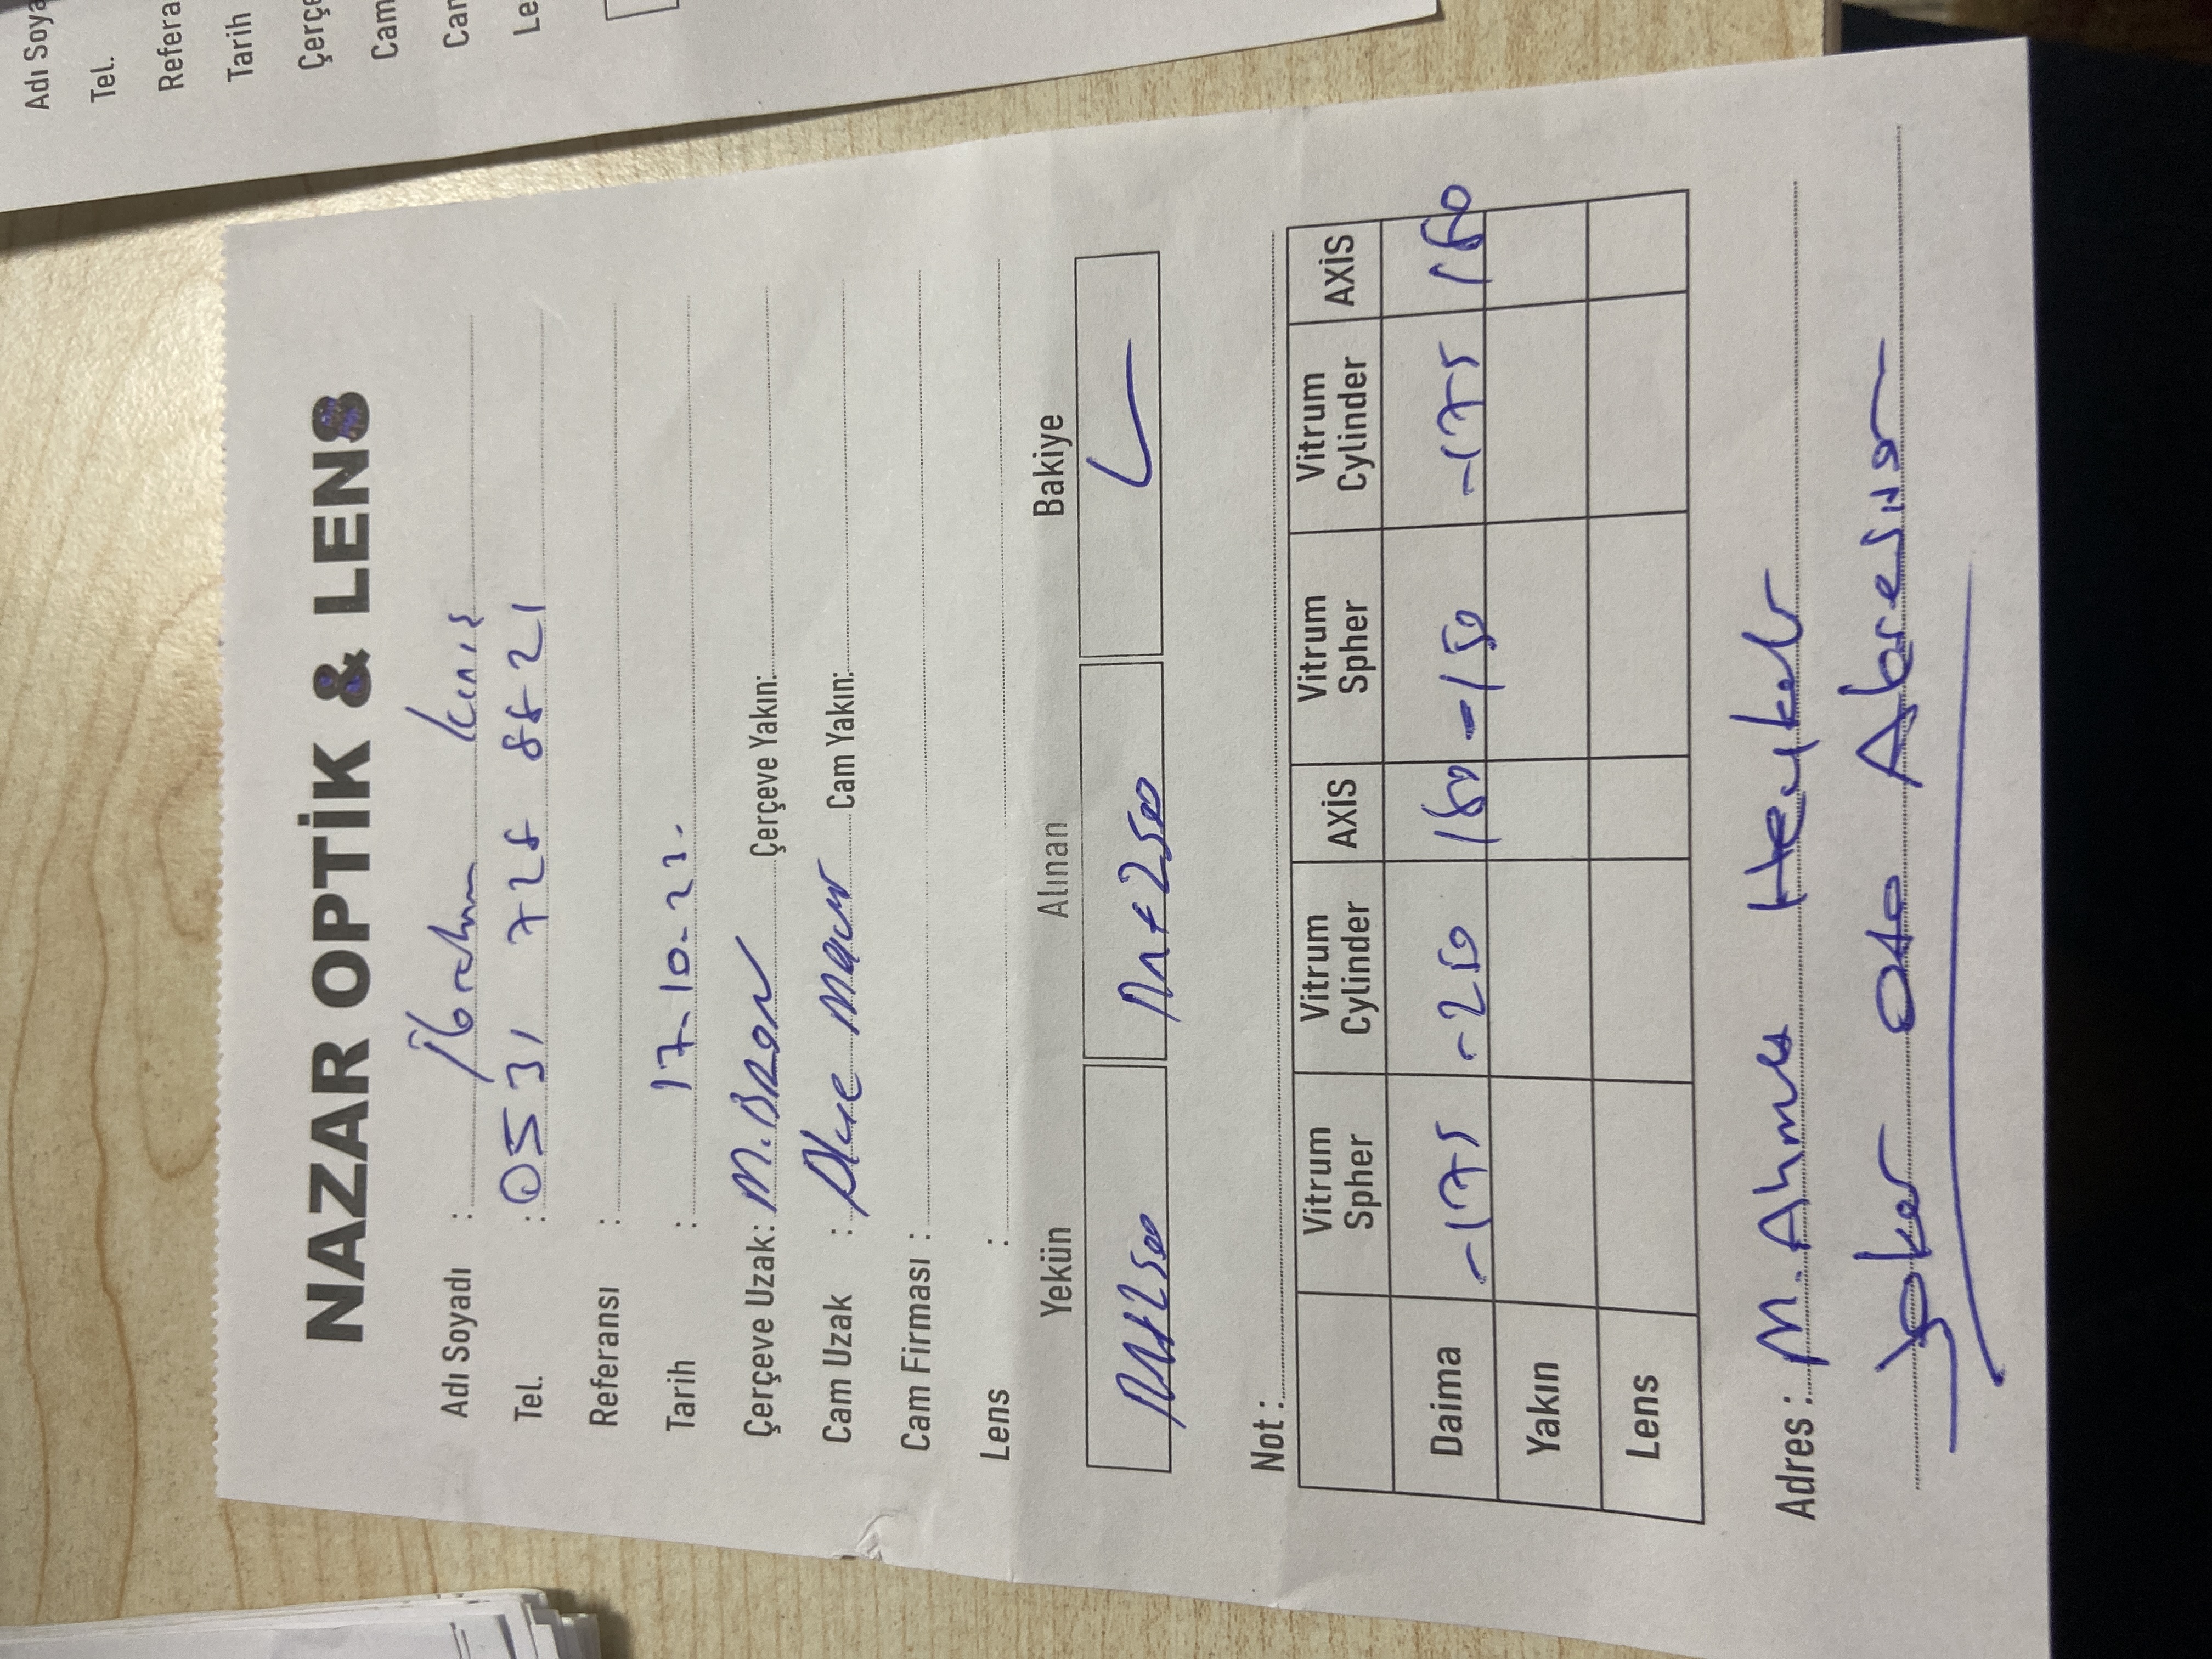 NAZAR OPTİK & LENS
Adı Soyadı : İbrahim Kınış
Tel. : 0531 728 8821
Referansı :
Tarih : 17-10-23.
Çerçeve Uzak: M.BRON Çerçeve Yakın:
Cam Uzak : Blue Mavi Cam Yakın:
Cam Firması :
Lens :
Yekün Alınan Bakiye
+2500 +2500
Not :
Vitrum Spher Vitrum Cylinder AXİS Vitrum Spher Vitrum Cylinder AXİS
Daima -175 -250 180 -150 -175 180
Yakın
Lens
Adres : M. Ahmet Heykel
Joker Oto
Adı Soya
Tel.
Refera
Tarih
Çerçe
Cam
Cam
Le